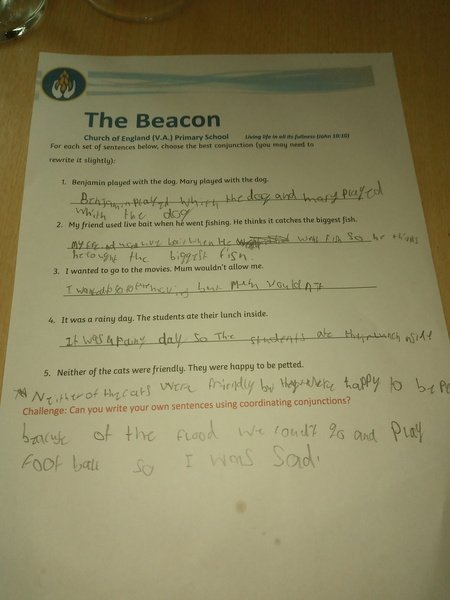 The Beacon
Church of England (V.A.) Primary School Living life in all its fullness (John 10:10)
For each set of sentences below, choose the best conjunction (you may need to
rewrite it slightly):
1. Benjamin played with the dog. Mary played with the dog.
Benjamin played whith the dog and mary played
whith the dog
2. My friend used live bait when he went fishing. He thinks it catches the biggest fish.
bait when He went fish so he thins
he cought the biggest fish.
3. I wanted to go to the movies. Mum wouldn't allow me.
I wanted to go to the but Mum
4. It was a rainy day. The students ate their lunch inside.
It was a rainy day so The students ate lunch inside
5. Neither of the cats were friendly. They were happy to be petted.
Neither of the cats were friendly happy to be pe
Challenge: Can you write your own sentences using coordinating conjunctions?
of the flood we go and play
foot ball so I was sad.